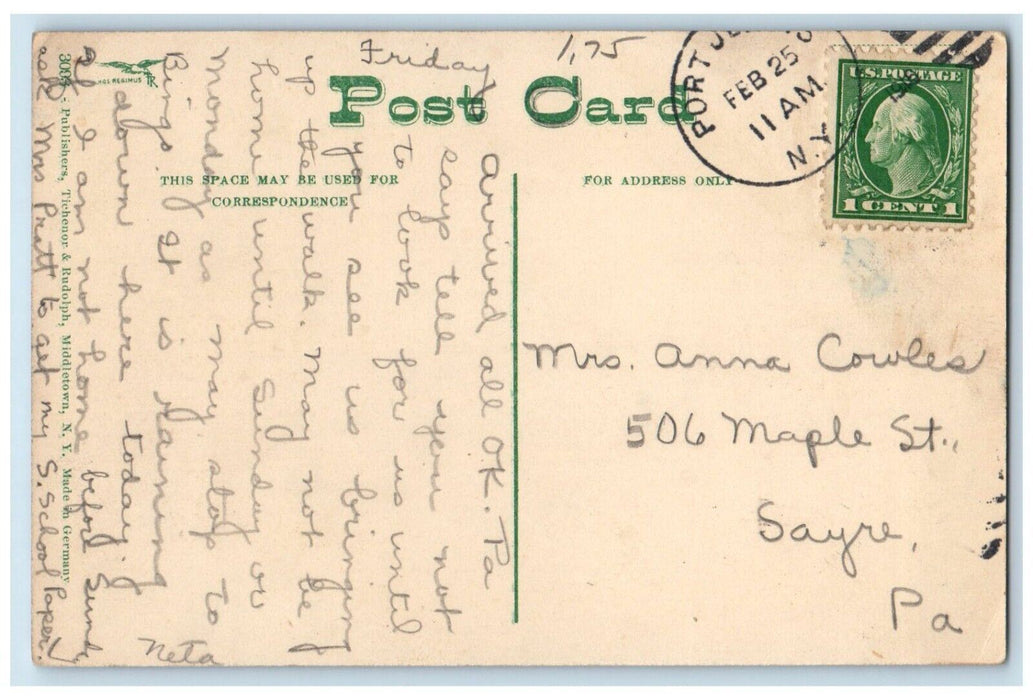 Friday
1,75
Post Card
THIS SPACE MAY BE USED FOR
CORRESPONDENCE
FOR ADDRESS ONLY
PORT JE
FEB 25
11 AM
N.Y.
U.S. POSTAGE
1 CENT 1
arrived all OK. Pa
says tell you not
to look for us until
you see us bringing
up the walk. May not be
home until Sunday or
Monday as may stop to
Bings. It is raining
down here today.
If I am not home before Sund
ask Mrs Pratt to get my S. School Paper.
Neta
Mrs. Anna Cowles
506 Maple St.,
Sayre,
Pa
3023 - Publishers, Tichenor & Rudolph, Middletown, N. Y. Made in Germany
HOS REGIMUS